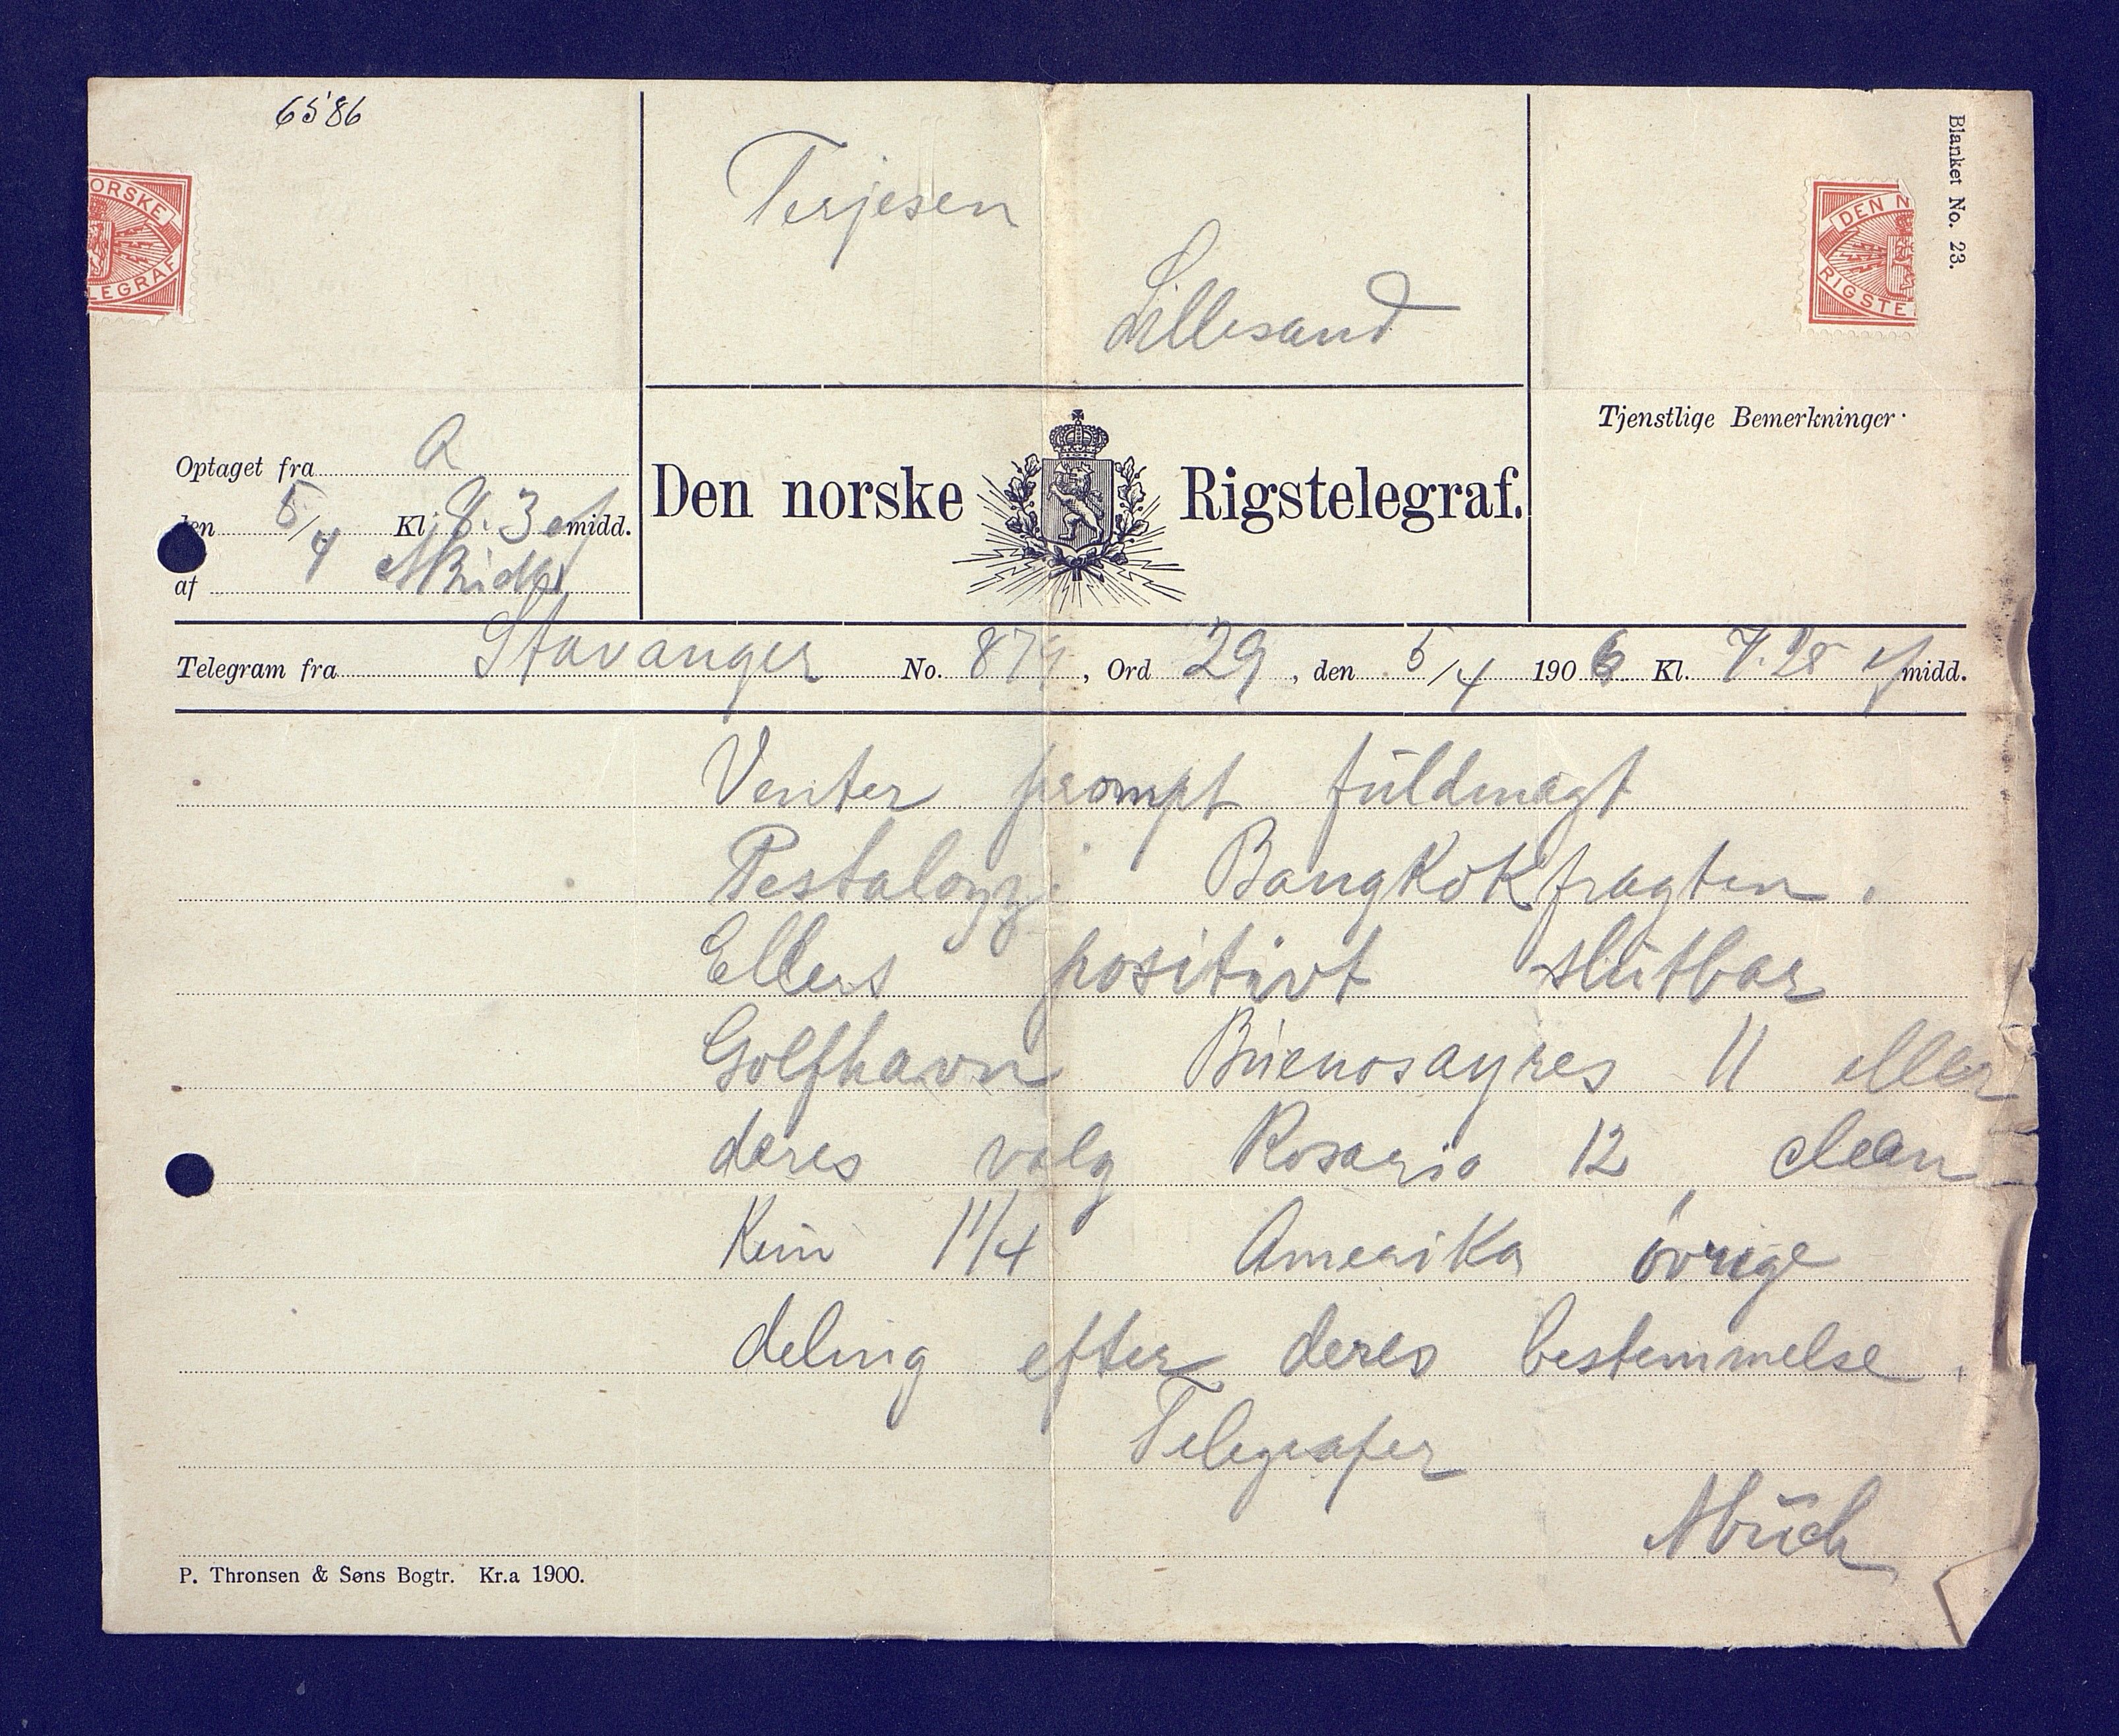 6586
Blanket No. 23.
ORSKE
LEGRAF
DEN N
RIGSTE
Terjesen
Lillesand
Tjenstlige Bemerkninger.
Optaget fra A
den 5/4 Kl. 3 e/midd.
af
Den norske Rigstelegraf.
Telegram fra Stavanger No. 879, Ord 29, den 5/4 1906 Kl. 7.25 e/midd.
Venter prompt fuldmagt
Pestalozzi Bangkokfragten.
Ellers positivt slutbar
Golfhavn Buenosayres 11 eller
deres valg Rosario 12, clean
Kun 11/4 Amerika övrige
deling efter deres bestemmelse.
Telegrafer
P. Thronsen & Søns Bogtr. Kr.a 1900.